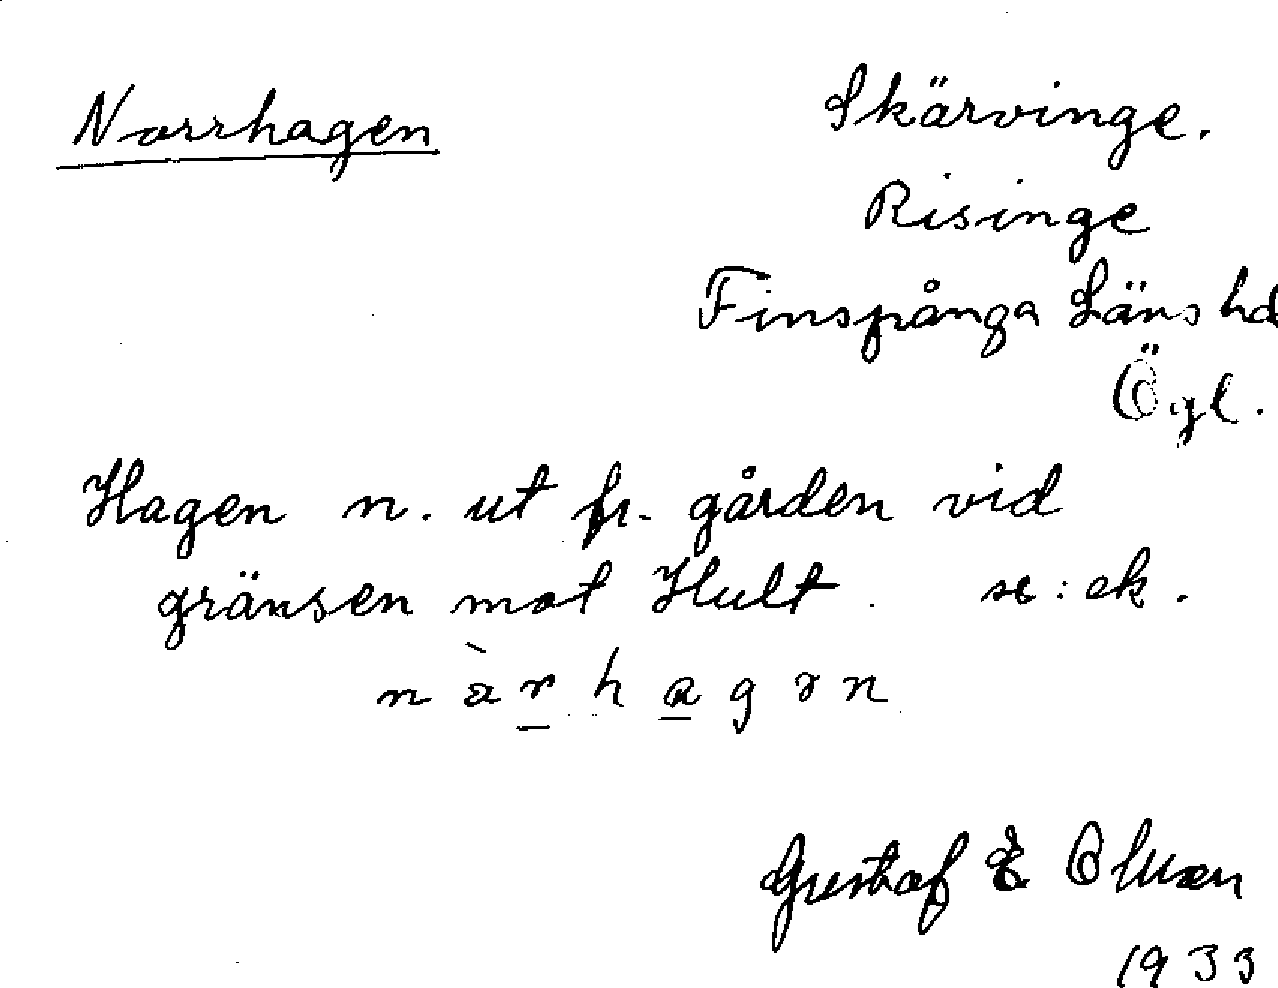 Norrhagen
Skärvinge.
Risinge
Finspånga Läns hd
Ögl.
Hagen n. ut fr. gården vid
gränsen mot Hult. se: ek.
Gustaf E Olsson
1933